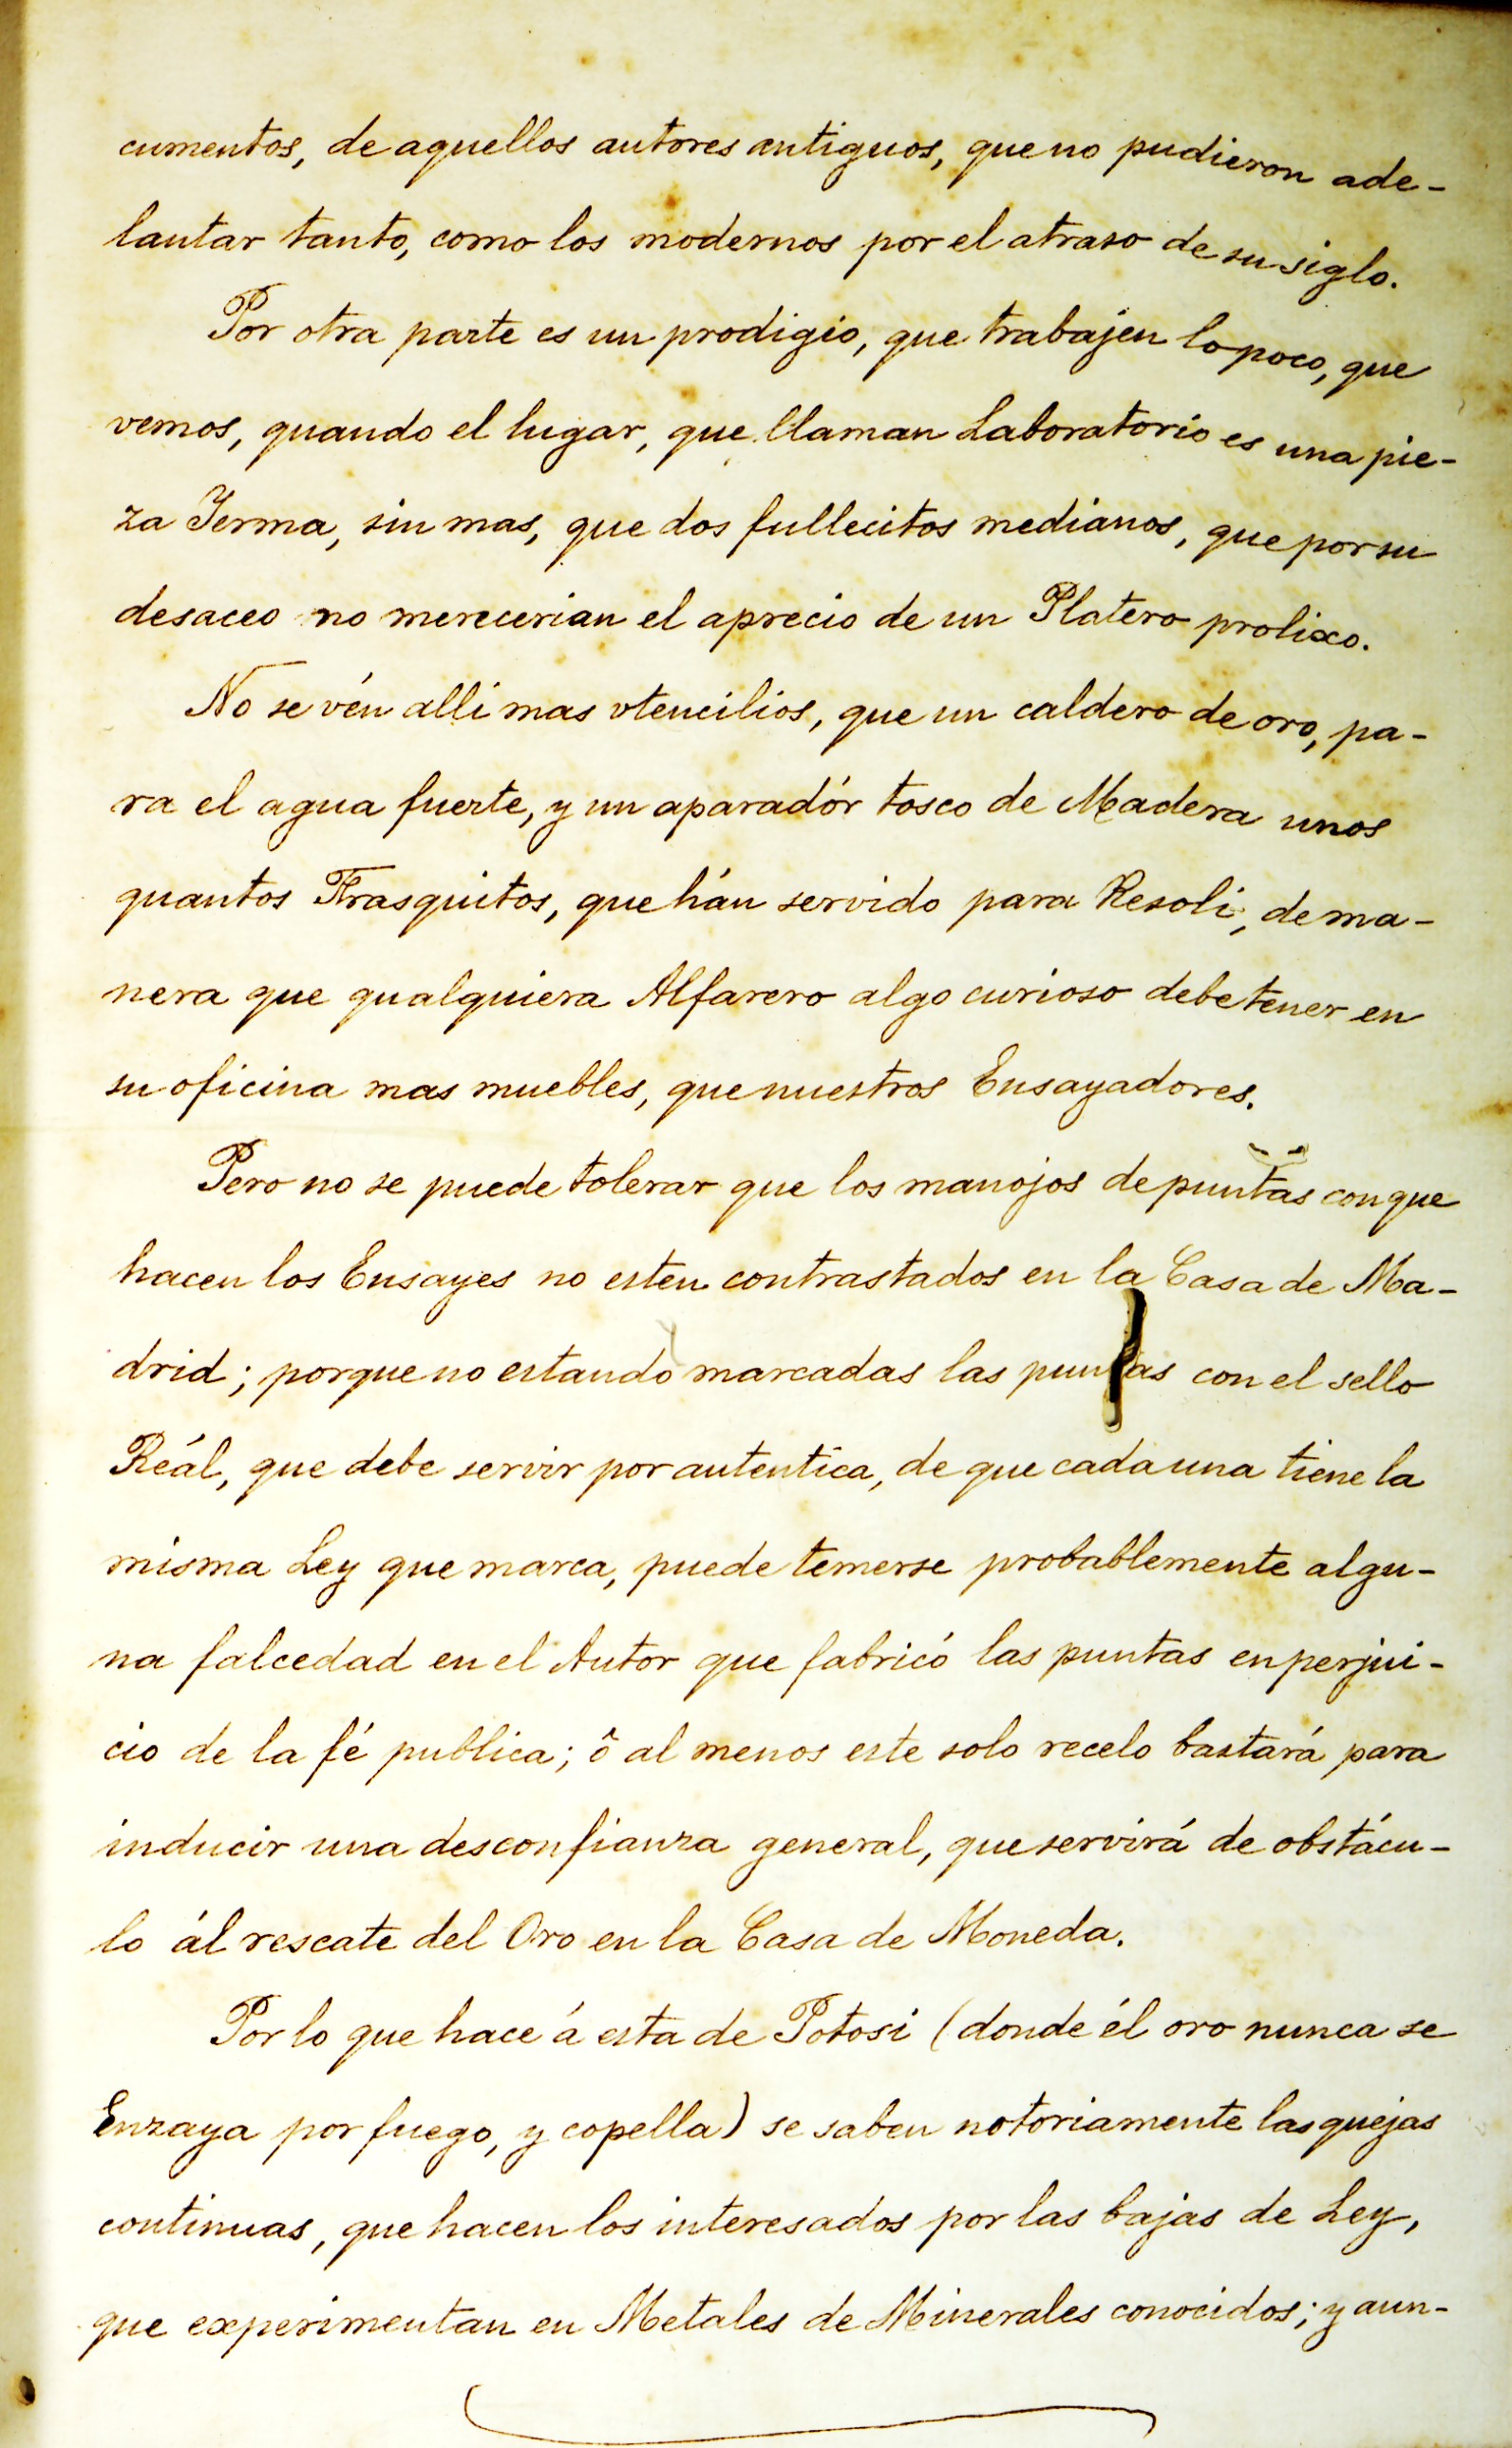 cumentos, de aquellos autores antiguos, que no pudieron ade-
lantar tanto, como los modernos por el atraso de su siglo.
Por otra parte es un prodigio, que trabajen lo poco, que
vemos, quando el lugar, que llaman Laboratorio es una pie-
za Yerma, sin mas, que dos fullecitos medianos, que por su
desaceo no merecerian el aprecio de un Platero prolixo.
No se vén alli mas vtencilios, que un caldero de oro, pa-
ra el agua fuerte, y un aparadór tosco de Madera unos
quantos Frasquitos, que hán servido para Resoli, de ma-
nera que qualquiera Alfarero algo curioso debe tener en
su oficina mas muebles, que nuestros Ensayadores.
Pero no se puede tolerar que los manojos de puntas con que
hacen los Ensayes no esten contrastados en la Casa de Ma-
drid; porque no estando marcadas las puntas con el sello
Reál, que debe servir por autentica, de que cada una tiene la
misma Ley que marca, puede temerse probablemente algu-
na falcedad en el Autor que fabricó las puntas en perjui-
cio de la fé publica; ô al menos este solo recelo bastará para
inducir una desconfianza general, que servirá de obstácu-
lo ál rescate del Oro en la Casa de Moneda.
Por lo que hace á esta de Potosi (donde él oro nunca se
Enzaya por fuego, y copella) se saben notoriamente las quejas
continuas, que hacen los interesados por las bajas de Ley,
que experimentan en Metales de Minerales conocidos; y aun-